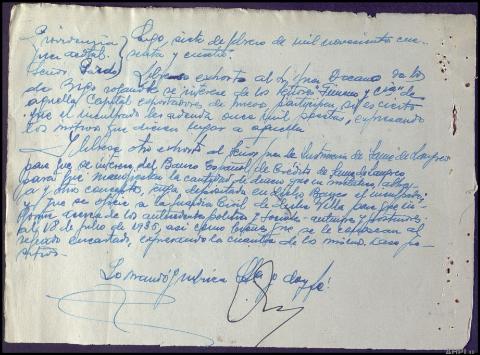 Providencia Lugo siete de febrero de mil novecientos cua-
Juez acctal. renta y cuatro.
Señor Pardo Líbrese exhorto al Sr. Juez Decano de los
de rogando se interese de los señores
aquella Capital exportadores de huevos participen si es cierto
que el inculpado les adeuda once mil pesetas, expresando
los motivos que dieron lugar a aquella
Líbrese otro exhorto al Señor Juez de Instrucción de
para que se interese del Banco Español de Crédito de
para que manifiesten la cantidad de dinero que en metálico,
y otro concepto, tenga depositado en dicho Banco el inculpado,
y que se oficie a la Guardia Civil de dicha Villa para que in-
forme acerca de los antecedentes político y sociales anteriores y posteriores
al 18 de julio de 1936, así como bienes que se le conozcan al
referido encartado, expresando la cuantía de los mismos.
Lo mandó y rubrica doy fé.
AHPL